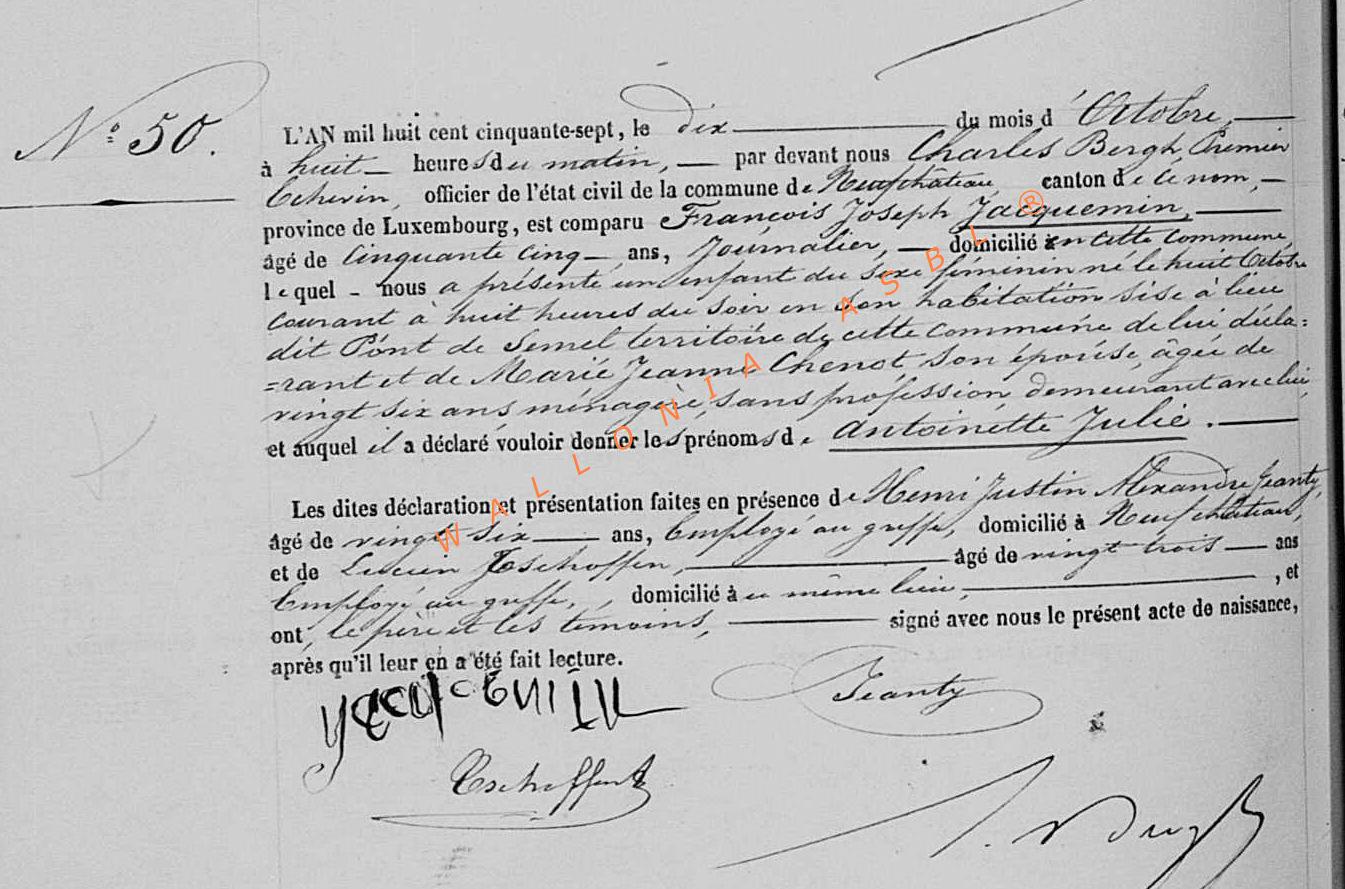 N° 50.
L'AN mil huit cent cinquante-sept, le dix du mois d'Octobre,
à huit heures du matin, par devant nous Charles Bergh, Premier
Echevin, officier de l'état civil de la commune de Neufchâteau, canton de ce nom,
province de Luxembourg, est comparu François Joseph Jacquemin,
âgé de cinquante cinq ans, Journalier, domicilié en cette commune,
lequel nous a présenté un enfant du sexe féminin né le huit Octobre
courant à huit heures du soir en son habitation sise à lieu
dit Pont de Semel territoire de cette commune de lui décla=
=rant et de Marie Jeanne Chenot, son épouse, âgée de
vingt six ans ménagère, sans profession demeurant avec lui,
et auquel il a déclaré vouloir donner les prénoms de Antoinette Julie.
Les dites déclaration et présentation faites en présence de Henri Justin Alexandre Jeanty,
âgé de vingt six ans, Employé au greffe, domicilié à Neufchâteau,
et de Lucien Tschoffen, âgé de vingt trois ans
Employé au greffe, domicilié à ce même lieu, , et
ont, le père et les témoins, signé avec nous le présent acte de naissance,
après qu'il leur en a été fait lecture.
Jeanty
Tschoffen
WALLONIA ASBL ®